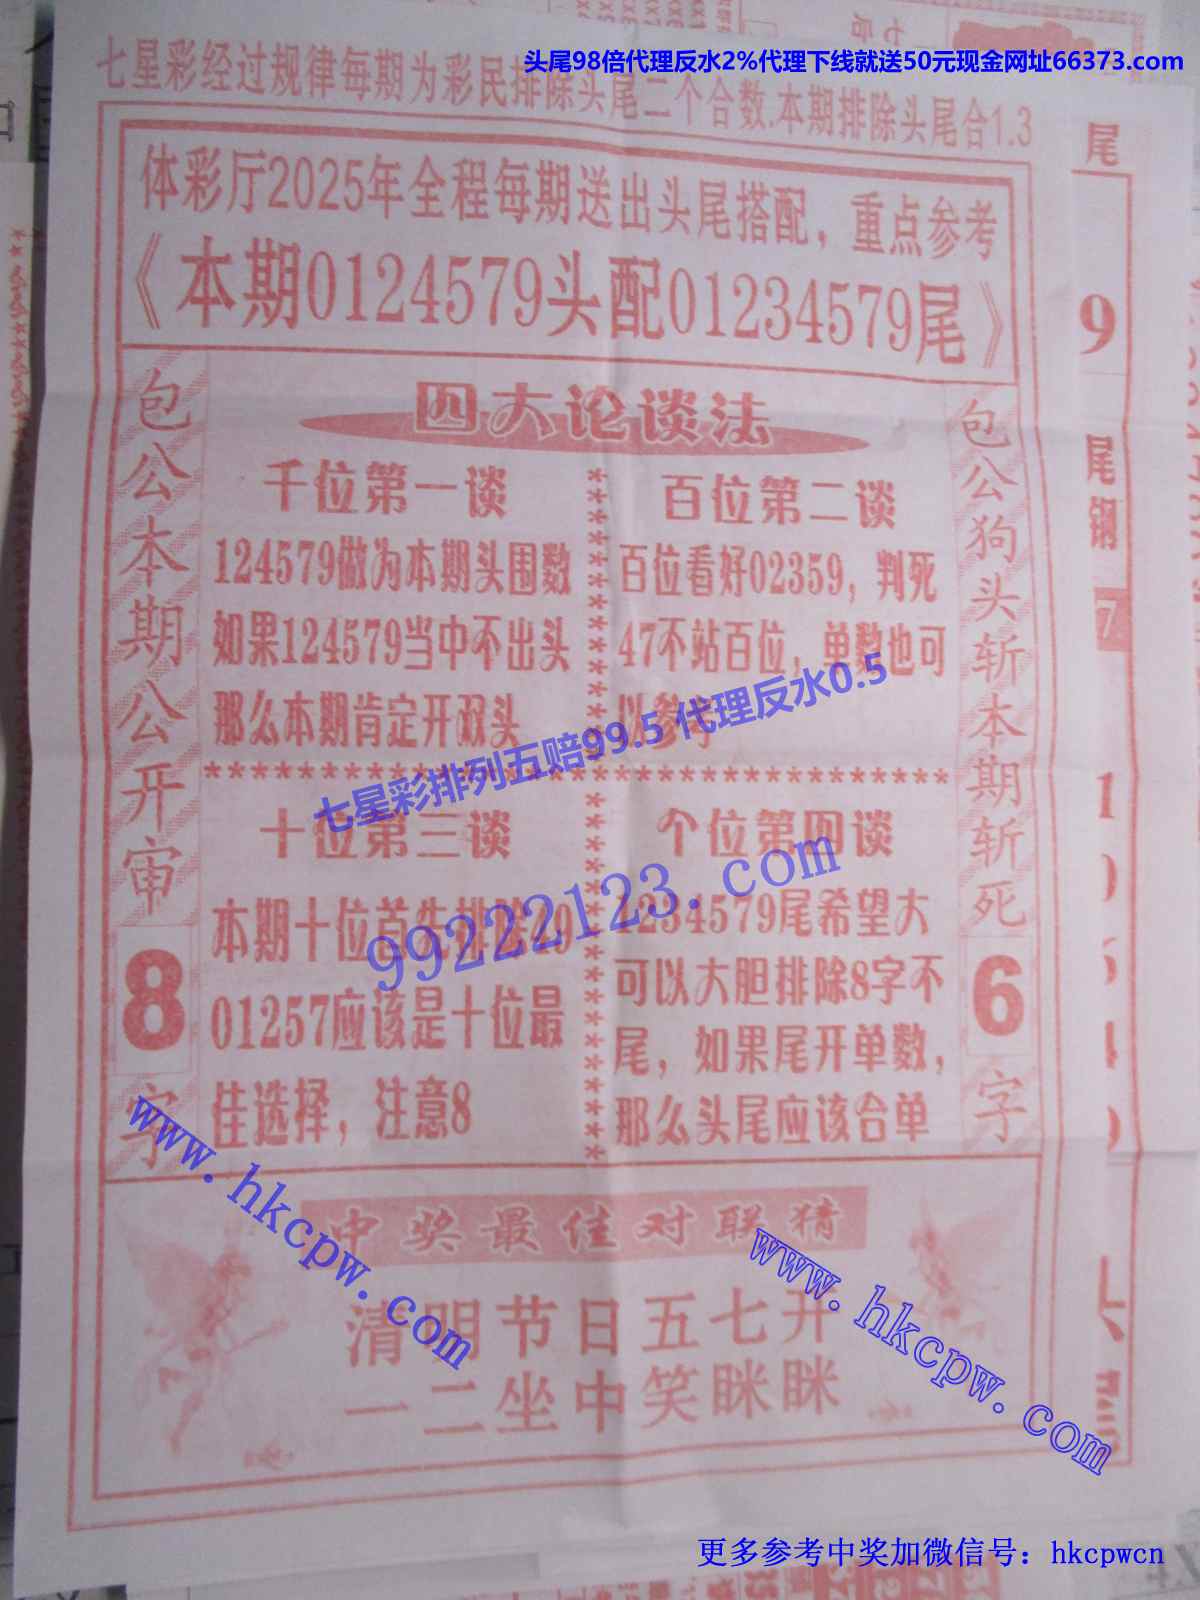 头尾98倍代理反水2%代理下线就送50元现金网址66373.com
七星彩经过规律每期为彩民排除头尾二个合数.本期排除头尾合1.3
体彩厅2025年全程每期送出头尾搭配，重点参考
《本期0124579头配01234579尾》
包公本期公开审8字
四大论谈法
千位第一谈
124579做为本期头围数
如果124579当中不出头
那么本期肯定开双头
百位第二谈
百位看好02359，判死
47不站百位，单数也可
以参考
十位第三谈
本期十位首先排除49
01257应该是十位最
佳选择，注意8
个位第四谈
1234579尾希望大
可以大胆排除8字不
尾，如果尾开单数，
那么头尾应该合单
包公狗头斩本期斩死6字
中奖最佳对联猜
清明节日五七开
一二坐中笑眯眯
尾
9
尾钢
7
七星彩排列五赔99.5 代理反水0.5
99222123.com
www.hkcpw.com
www.hkcpw.com
更多参考中奖加微信号：hkcpwcn